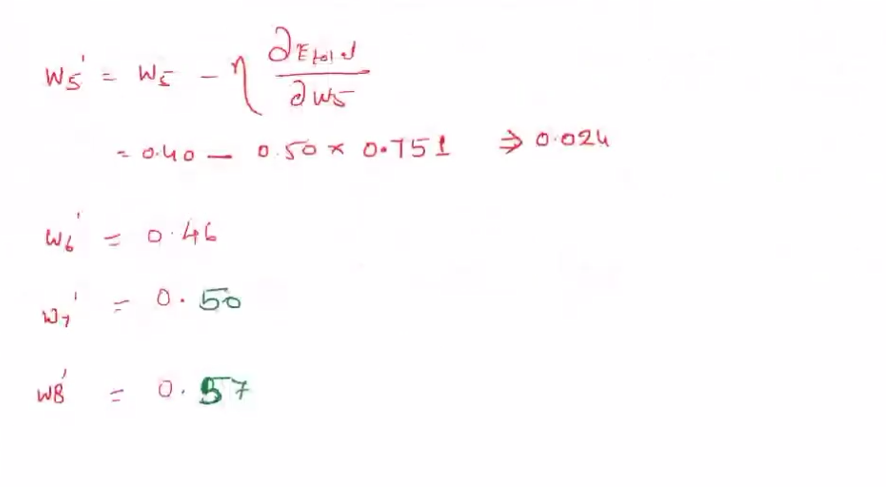 W5' = W5 - η ∂Etotal/∂W5
= 0.40 - 0.50 × 0.751 ⇒ 0.024
W6' = 0.46
W7' = 0.50
W8' = 0.57